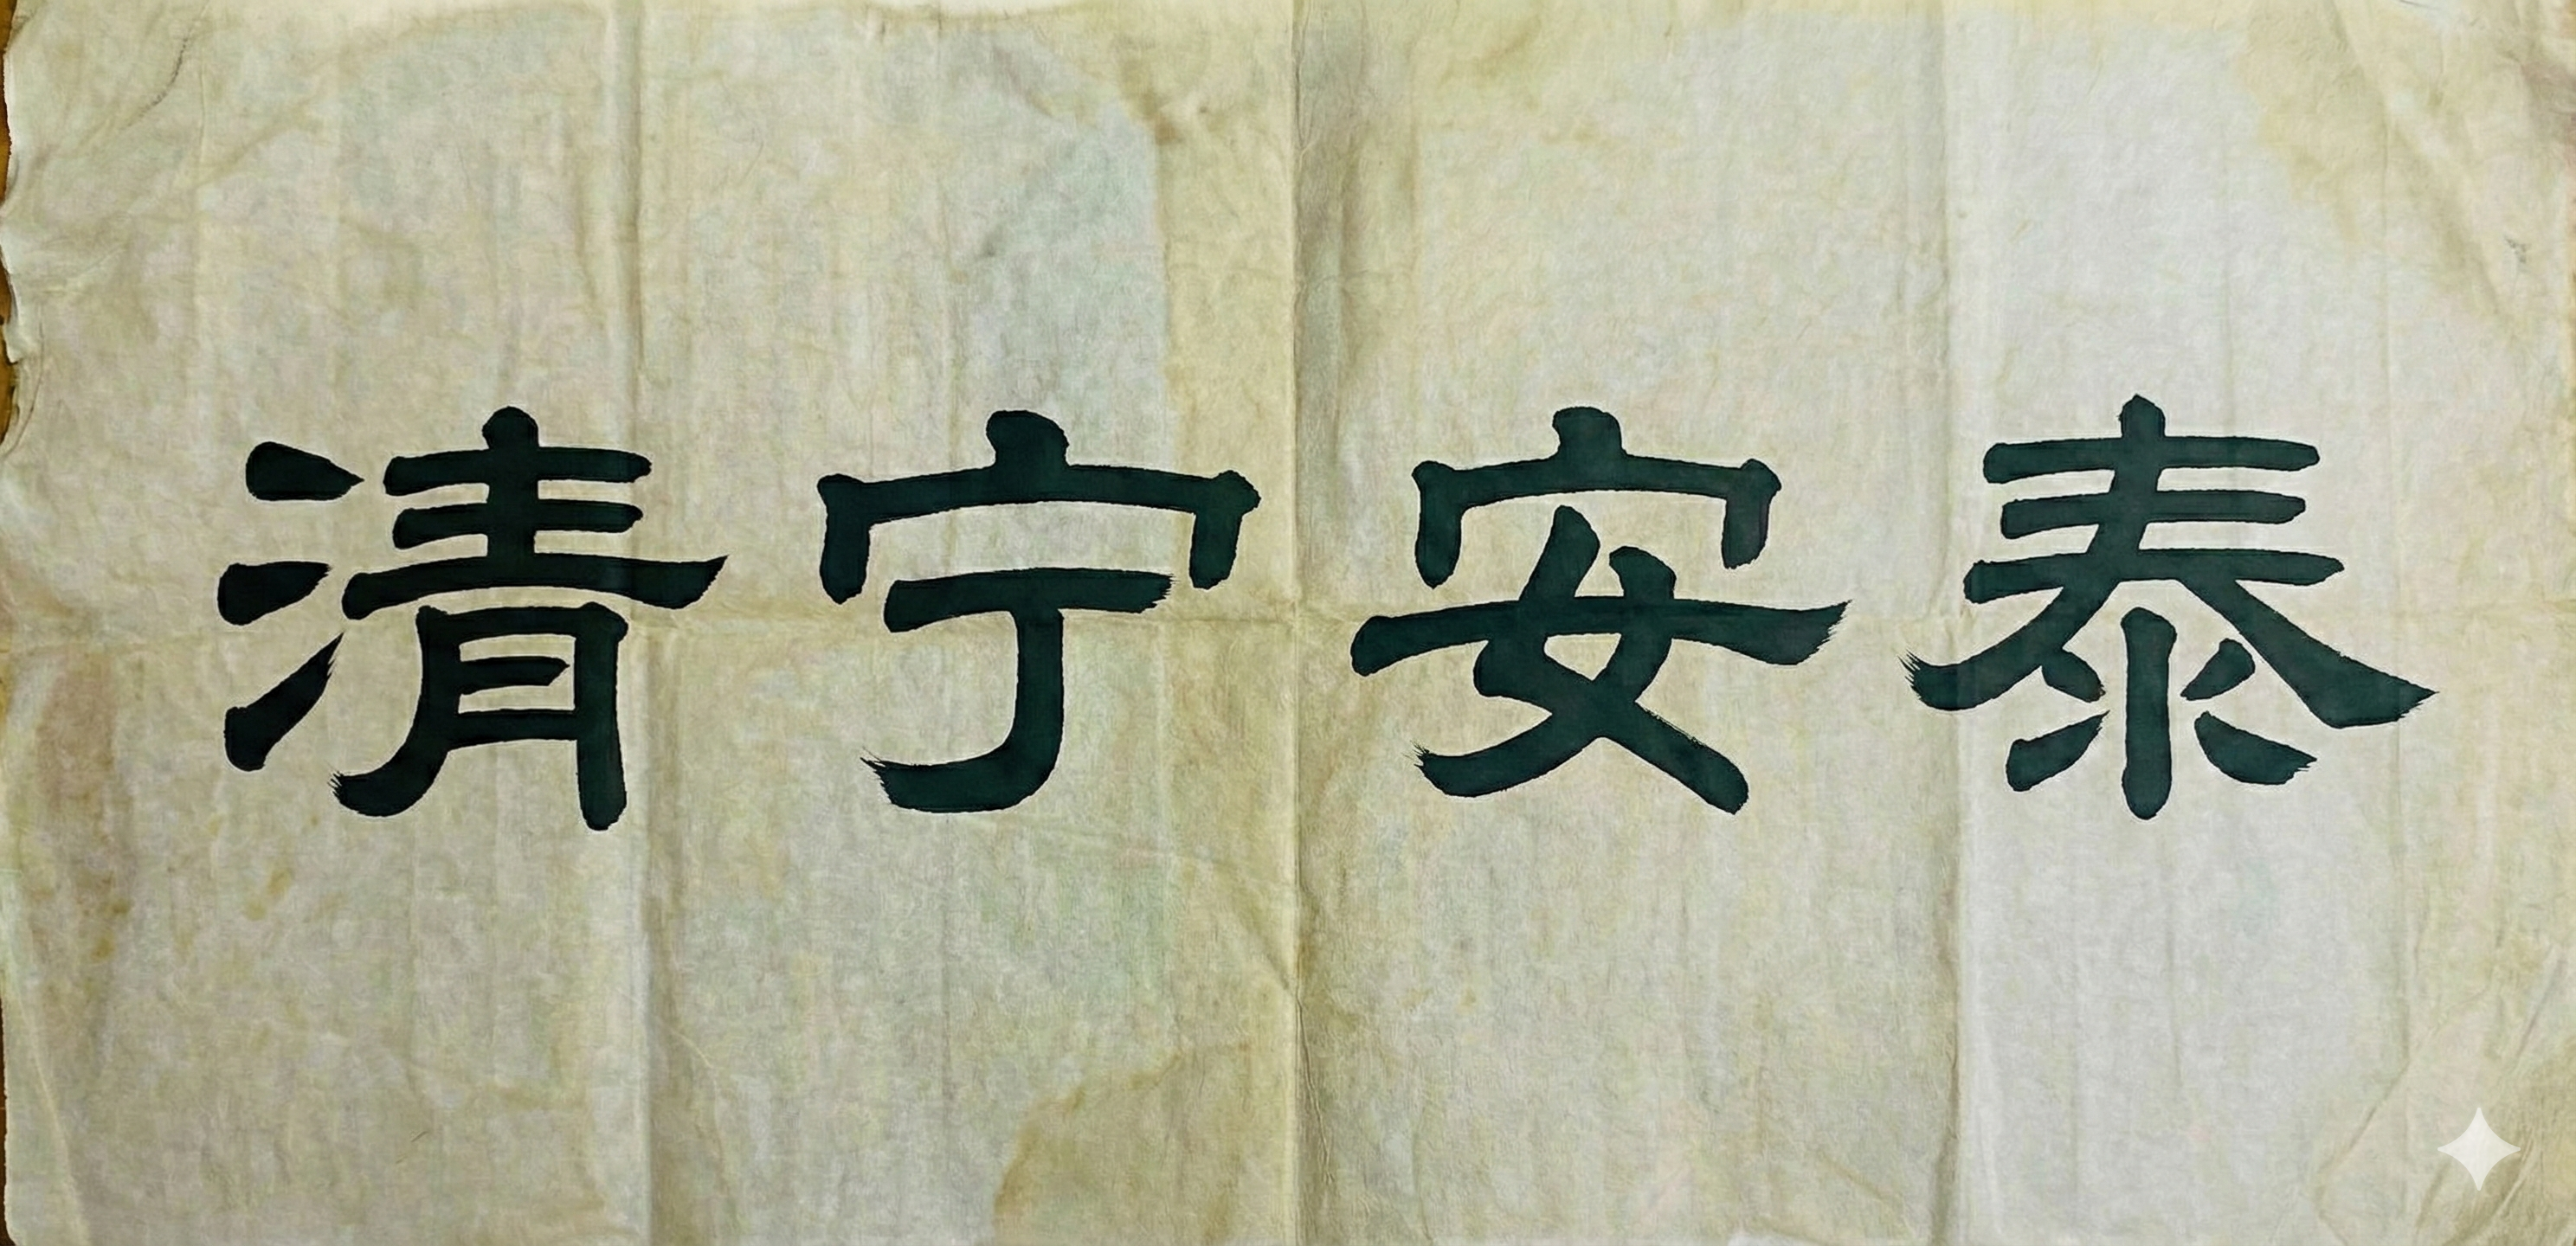 清宁安泰